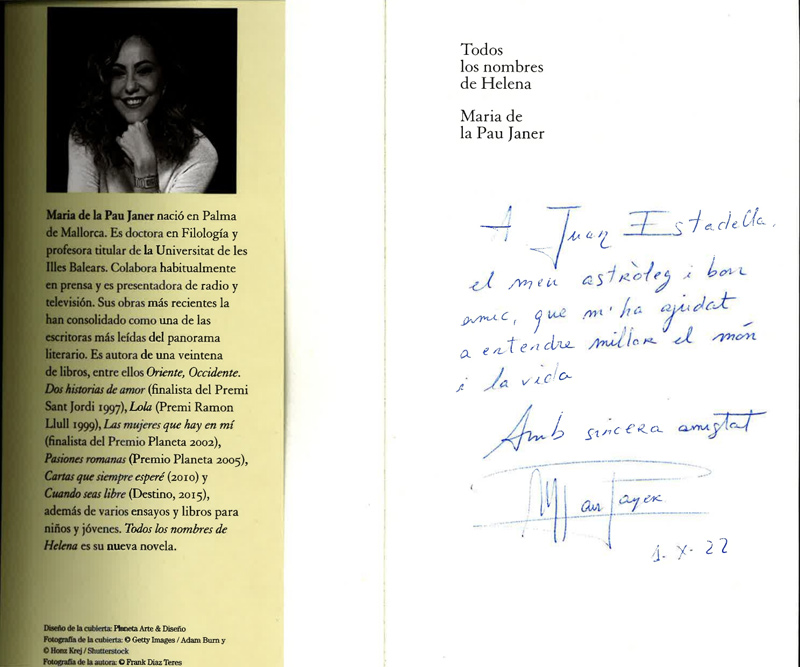 Maria de la Pau Janer nació en Palma
de Mallorca. Es doctora en Filología y
profesora titular de la Universitat de les
Illes Balears. Colabora habitualmente
en prensa y es presentadora de radio y
televisión. Sus obras más recientes la
han consolidado como una de las
escritoras más leídas del panorama
literario. Es autora de una veintena
de libros, entre ellos Oriente, Occidente.
Dos historias de amor (finalista del Premi
Sant Jordi 1997), Lola (Premi Ramon
Llull 1999), Las mujeres que hay en mí
(finalista del Premio Planeta 2002),
Pasiones romanas (Premio Planeta 2005),
Cartas que siempre esperé (2010) y
Cuando seas libre (Destino, 2015),
además de varios ensayos y libros para
niños y jóvenes. Todos los nombres de
Helena es su nueva novela.
Diseño de la cubierta: Planeta Arte & Diseño
Fotografía de la cubierta: © Getty Images / Adam Burn y
© Honz Krej / Shutterstock
Fotografía de la autora: © Frank Díaz Teres
Todos
los nombres
de Helena
Maria de
la Pau Janer
A Juan Estadella,
el meu astròleg i bon
amic, que m'ha ajudat
a entendre millor el món
i la vida
Amb sincera amistat
MPau Janer
1. X. 22